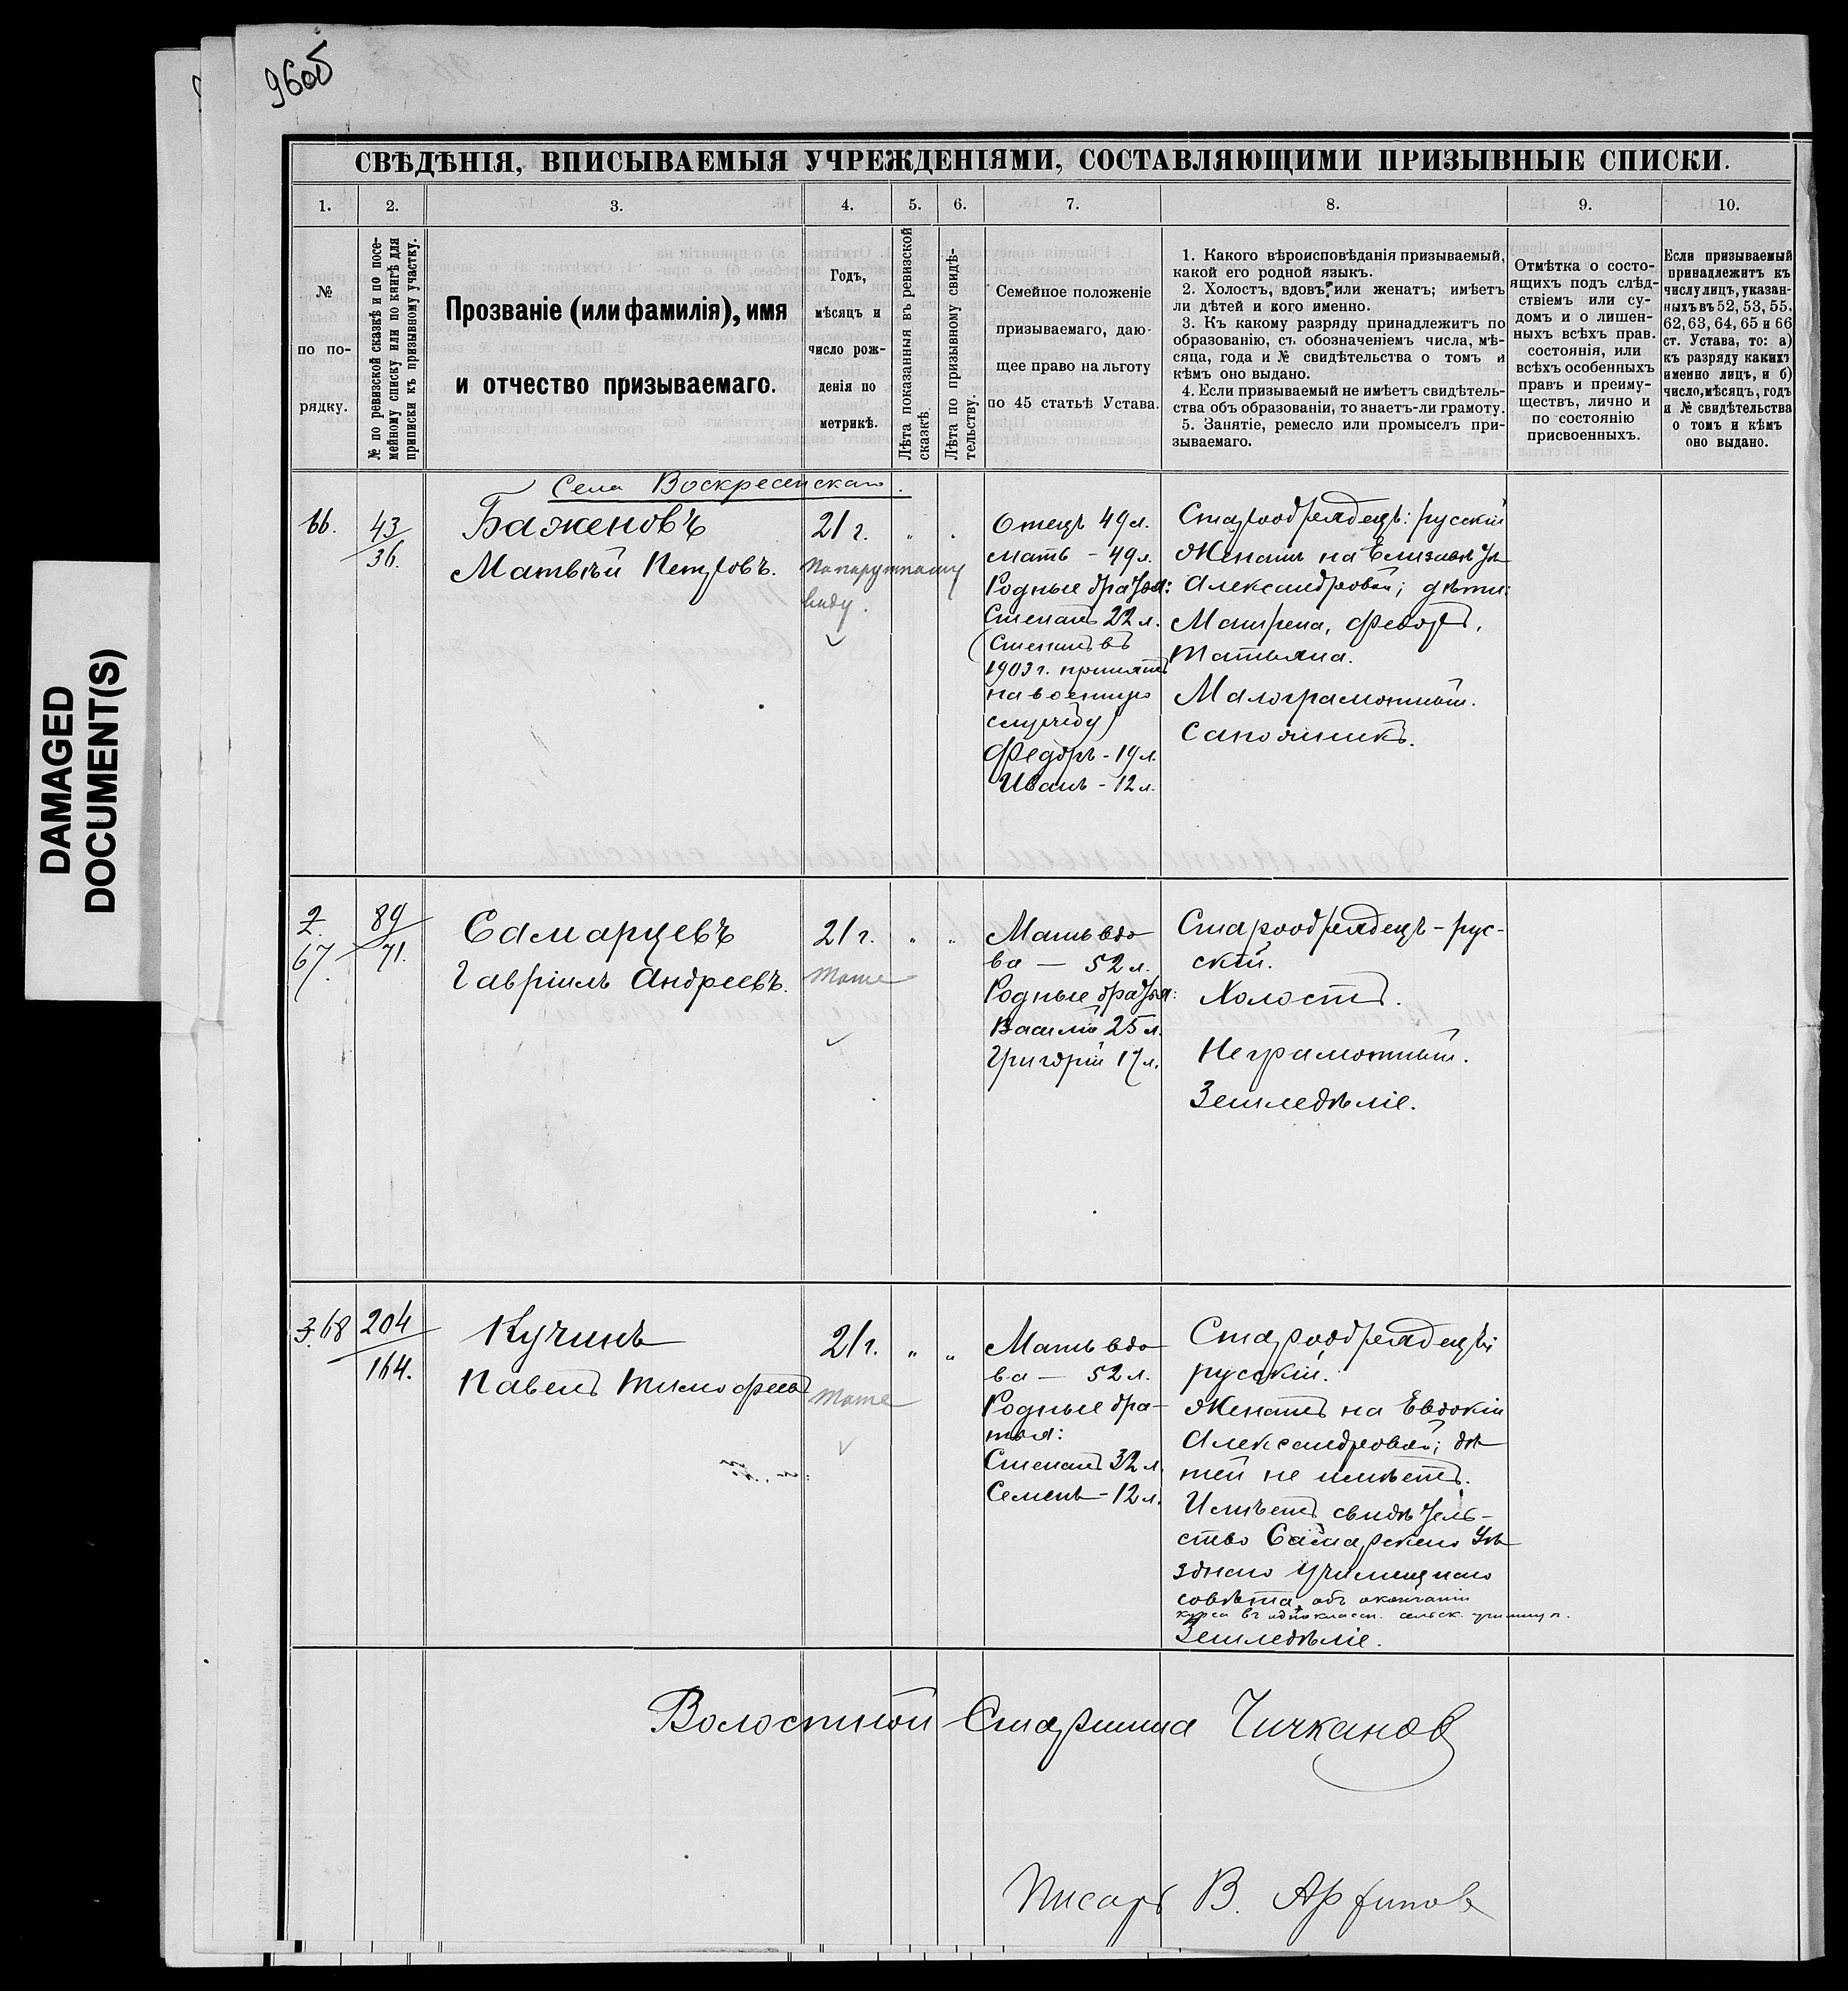 96об
DAMAGED
DOCUMENT(S)
СВѢДѢНІЯ, ВПИСЫВАЕМЫЯ УЧРЕЖДЕНІЯМИ, СОСТАВЛЯЮЩИМИ ПРИЗЫВНЫЕ СПИСКИ.
1. 2. 3. 4. 5. 6. 7. 8. 9. 10.
№
по по-
рядку.
№ по ревизской сказкѣ и по посе-
мейному списку или по книгѣ для
приписки къ призывному участку.
Прозваніе (или фамилія), имя
и отчество призываемаго.
Годъ,
мѣсяцъ и
число рож-
денія по
метрикѣ.
Лѣта показанныя въ ревизской
сказкѣ.
Лѣта по призывному свидѣ-
тельству.
Семейное положеніе
призываемаго, даю-
щее право на льготу
по 45 статьѣ Устава.
1. Какого вѣроисповѣданія призываемый,
какой его родной языкъ.
2. Холостъ, вдовъ, или женатъ; имѣетъ
ли дѣтей и кого именно.
3. Къ какому разряду принадлежитъ по
образованію, съ обозначеніемъ числа, мѣ-
сяца, года и № свидѣтельства о томъ и
кѣмъ оно выдано.
4. Если призываемый не имѣетъ свидѣтель-
ства объ образованіи, то знаетъ-ли грамоту.
5. Занятіе, ремесло или промыселъ при-
зываемаго.
Отмѣтка о состо-
ящихъ подъ слѣд-
ствіемъ или су-
домъ и о лишен-
ныхъ всѣхъ прав.
состоянія, или
всѣхъ особенныхъ
правъ и преиму-
ществъ, лично и
по состоянію
присвоенныхъ.
Если призываемый
принадлежитъ къ
числу лицъ, указан-
ныхъ въ 52, 53, 55.
62, 63, 64, 65 и 66
ст. Устава, то: а)
къ разряду какихъ
именно лицъ, и б)
число, мѣсяцъ, годъ
и № свидѣтельства
о томъ и кѣмъ
оно выдано.
Села Воскресенскаго.
66.
43
36.
Баженовъ
Матвѣй Петровъ.
21 г. „ „
По наружному
виду.
Отецъ 49 л.
мать - 49 л.
Родные братья:
Степанъ 22 л.
(Степанъ въ
1903 г. принятъ
на военную
службу)
Федоръ - 19 л.
Иванъ - 12 л.
Старообрядецъ: русскій
Женатъ на Елизаветѣ
Александровой; дѣти:
Матрена, Федотъ,
Татьяна.
Малограмотный.
Сапожникъ.
2.
67.
89
71.
Самарцевъ
Гавріилъ Андреевъ.
21 г. „ „
тоже
Мать вдо
ва — 52 л.
Родные братья:
Василій 25 л.
Григорій 17 л.
Старообрядецъ - рус-
скій.
Холостъ.
Неграмотный.
Земледѣліе.
3. 68
204
164.
Кучинъ
Павелъ Тимофеевъ
21 г. „ „
тоже
Мать вдо
ва — 52 л.
Родные бра-
тья:
Степанъ 32 л.
Семенъ - 12 л.
Старообрядецъ;
русскій.
Женатъ на Евдокіи
Александровой; дѣ
тей не имѣетъ.
Имѣетъ свидѣтель-
ство Самарскаго Уѣ
зднаго Училищнаго
совѣта объ окончаніи
курса въ однокласн. сельск. училищѣ.
Земледѣліе.
Волостной Старшина Чичканов
Писарь В. Архипов